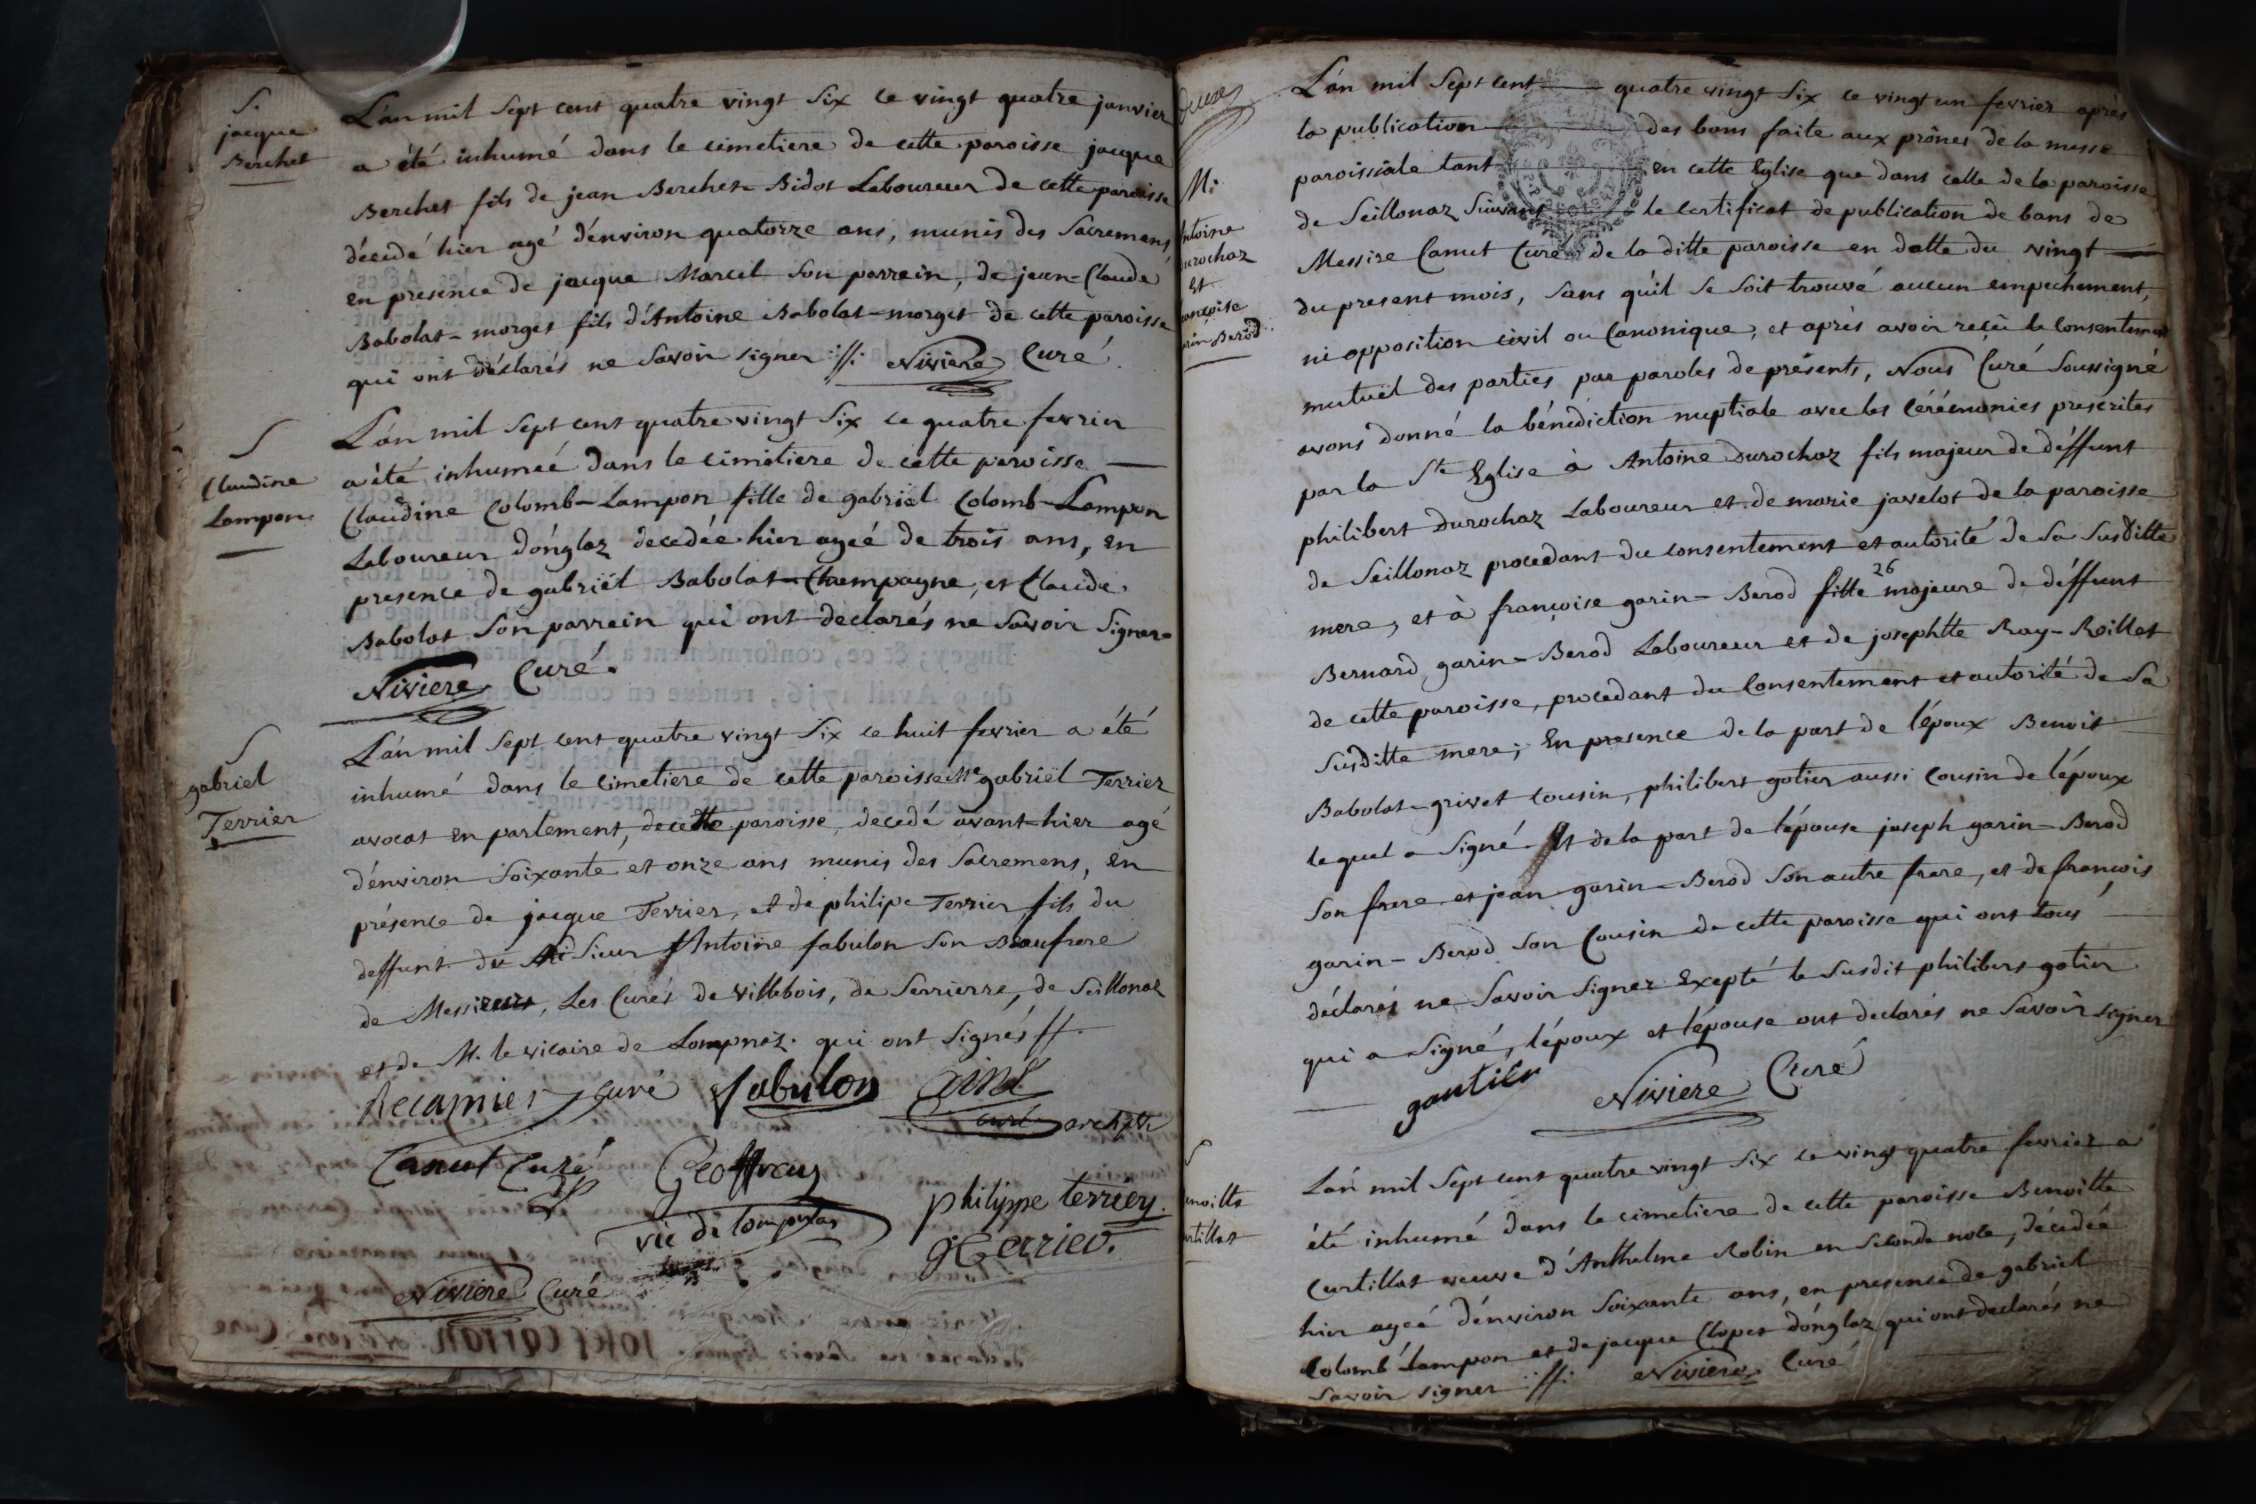 S.
jacque
Berchet
L'an mil sept cent quatre vingt six ce vingt quatre janvier
a été inhumé dans le cimetiere de cette paroisse jacque
Berchet fils de jean Berchet-Bidot Laboureur de cette paroisse
décedé hier agé d'énviron quatorze ans, munis des Sacremens
en presence de jacque Marcel son parrein, de jean-Claude
Babolat-morget fils d'Antoine Babolat-morget de cette paroisse
qui ont déclarés ne Savoir signer Niviere Curé
S
Claudine
Lampon
L'an mil sept cent quatre vingt six ce quatre fevrier
a été inhumeé dans le cimetiere de cette paroisse
Claudine Colomb-Lampon fille de gabriël Colomb-Lampon
Laboureur d'onglaz decedée hier ageé de trois ans, en
presence de gabriël Babolat-Champagne, et Claude
Babolat son parrein qui ont declarés ne Savoir Signer
Niviere Curé.
S
gabriel
Terrier
L'an mil sept cent quatre vingt six ce huit fevrier a été
inhumé dans le cimetiere de cette paroisse Me gabriël Terrier
avocat en parlement, de cette paroisse, decedé avant-hier agé
d'énviron Soixante et onze ans munis des Sacremens, en
présence de jacque Terrier, et de philipe Terrier fils du
deffunt du Sieur Antoine fabulon son Beaufrere
de Messieurs, Les Curés de villebois, de Serrierre, de Seillonaz
et de M. le vicaire de Lompnaz. qui ont Signés
Recamier curé fabulon
curé archiptre
Canut Curé Geoffray
vic de lompnas
philippe terrier
Terrier
Niviere Curé
M.
Antoine
Durochaz
Et
françoise
garin Berod
L'an mil Sept cent quatre vingt six ce vingt un fevrier après
la publication des bans faite aux prônes de la messe
paroissiale tant en cette Eglise que dans celle de la paroisse
de Seillonaz Suivant le certificat de publication de bans de
Messire Canut Curé de la ditte paroisse en datte du vingt
du present mois, sans qu'il se soit trouvé aucun empechement,
ni opposition civil ou Canonique, et après avoir reçû le Consentement
mutuël des parties par paroles de présents, Nous Curé Soussigné
avons donné la bénédiction nuptiale avec les Cérémonies prescrites
par la Ste Eglise à Antoine Durochaz fils majeur de déffunt
philibert Durochaz Laboureur et de marie javelot de la paroisse
de Seillonaz procedant du consentement et autorité de Sa Susditte
mere, et à françoise garin-Berod fille 26 majeure de déffunt
Bernard garin-Berod Laboureur et de josephtte Ray-Roillet
de cette paroisse, procedant du Consentement et autorité de Sa
Susditte mere; En presence de la part de l'époux Benoit
Babolat-grivet cousin, philibert gotier aussi Cousin de l'époux
lequel a Signé. Et de la part de l'épouse joseph garin-Berod
Son frere et jean garin-Berod Son autre frere, et de françois
garin-Berod Son Cousin de cette paroisse qui ont tous
déclarés ne Savoir Signer Excepté le Susdit philibert gotier
qui a Signé, l'époux et l'épouse ont declarés ne Savoir signer
gautier Niviere Curé
S
L'an mil Sept cent quatre vingt six ce vingt quatre fevrier a
été inhumé dans le cimetiere de cette paroisse Benoitte
Curtillat veuve d'Anthelme Robin en Seconde noce, décedeé
hier ageé d'énviron Soixante ans, en presence de gabriel
Colomb Lampon et de jacque Clopet d'onglaz qui ont declarés ne
Savoir signer Niviere Curé